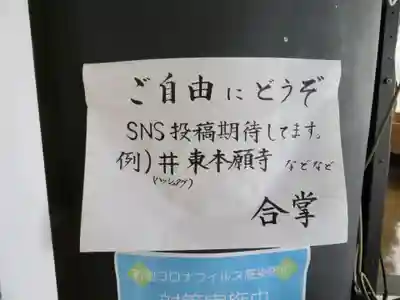 ご自由にどうぞ
SNS投稿期待してます。
例)井東本願寺 などなど
(ハッシュタグ)
合掌
コロナウイルス感染
対策実施中